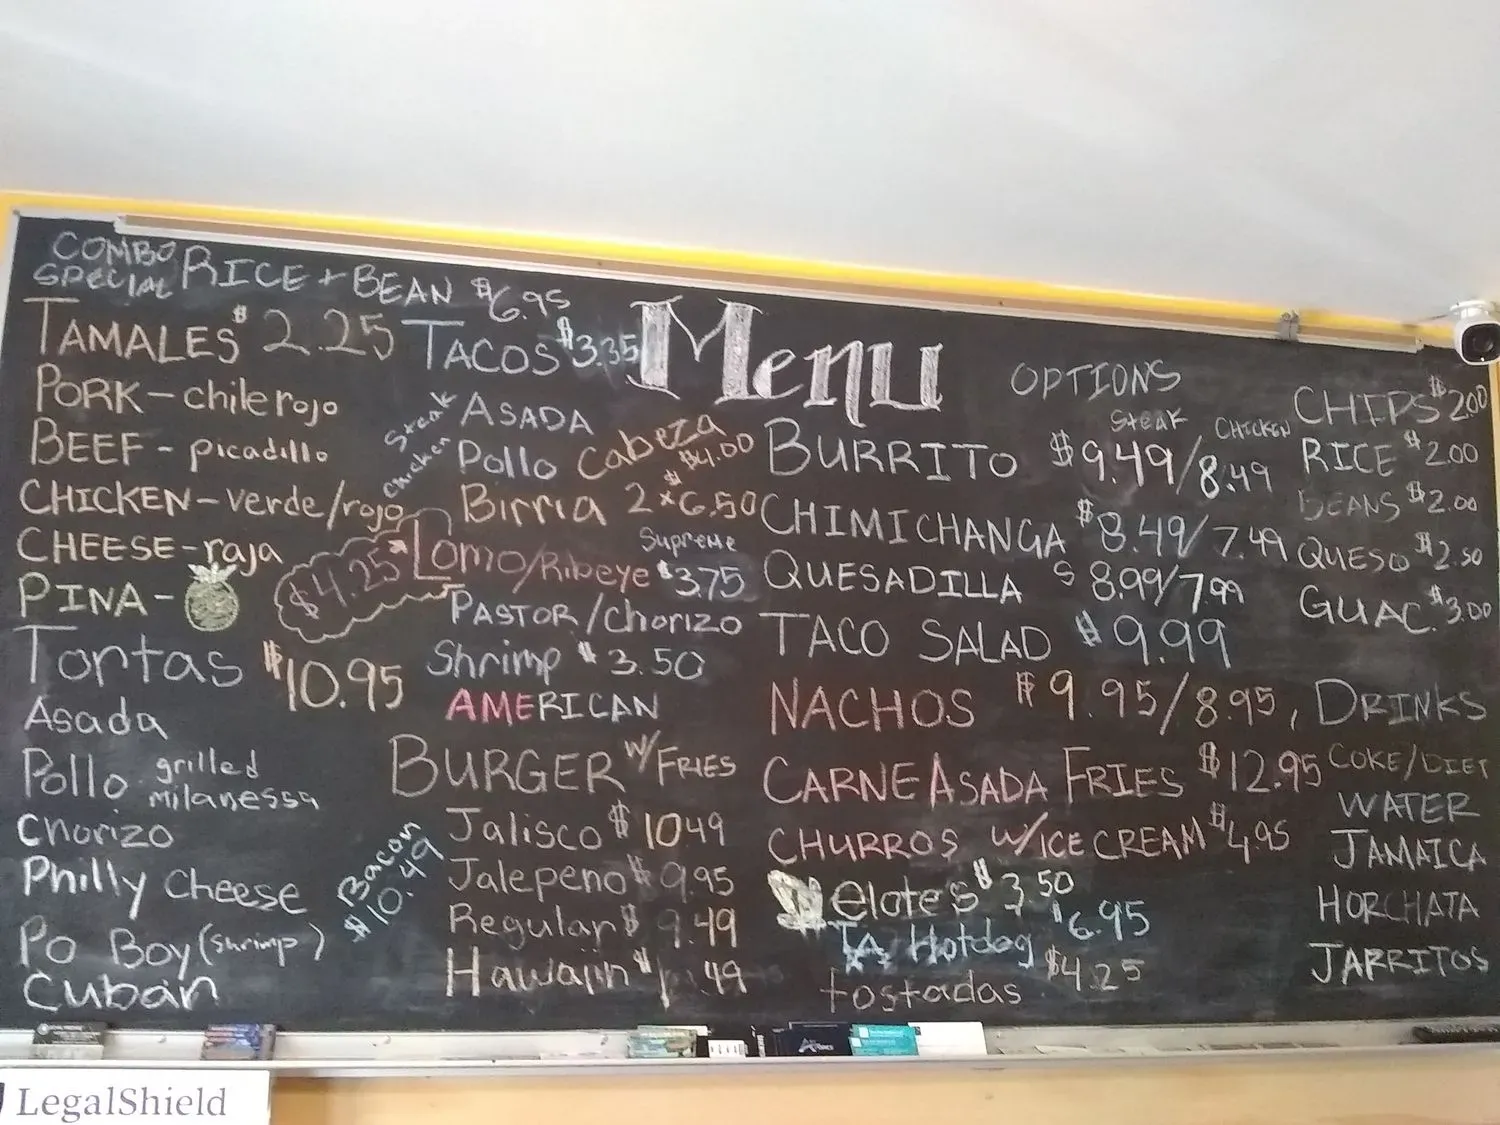 COMBO SPECIAL RICE + BEAN $6.95
Menu
TAMALES $2.25
PORK - chile rojo
BEEF - picadillo
CHICKEN - verde/rojo
CHEESE - raja
PINA -
Tortas $10.95
Asada
Pollo grilled milanessa
Chorizo
Philly Cheese
Po Boy (shrimp)
Cuban
TACOS $3.35
Steak ASADA
Chicken Pollo
Cabeza $4.00
Birria 2 x $6.50
$4.25 Lomo/Ribeye
Supreme $3.75
PASTOR/Chorizo
Shrimp $3.50
AMERICAN
BURGER W/ FRIES
Jalisco $10.49
Jalepeno $9.95
Regular $9.49
Hawaiin
Bacon $10.49
OPTIONS
Steak CHICKEN
BURRITO $9.49/8.49
CHIMICHANGA $8.49/7.49
QUESADILLA $8.99/7.99
TACO SALAD $9.99
NACHOS $9.95/8.95
CARNE ASADA FRIES $12.95
CHURROS W/ICE CREAM $4.95
elotes $3.50
TA Hotdog $6.95
tostadas $4.25
CHIPS $2.00
RICE $2.00
BEANS $2.00
QUESO $2.50
GUAC. $3.00
DRINKS
COKE/DIET
WATER
JAMAICA
HORCHATA
JARRITOS
LegalShield